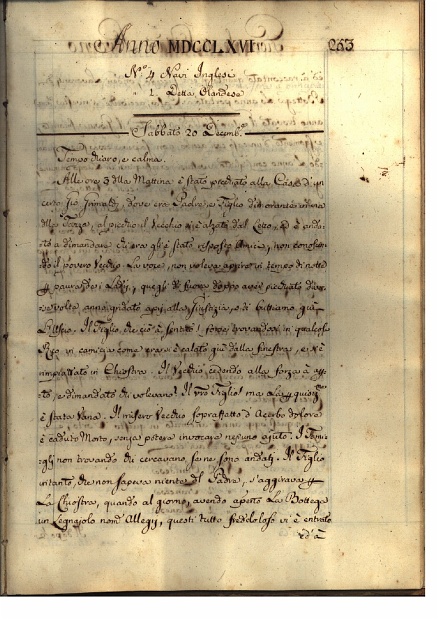 Anno MDCCLXVI 263
N.º 4 Navi Inglesi
1. Detta Olandese
Sabbato 20 Decemb.e
Tempo chiaro, e calma.
Alle ore 3 della Mattina è stato picchiato alla Casa d'un
certo dove era Padre, e Figlio dormendo
al picchio il Vecchio s'è alzato del Letto, ed è anda-
to a dimandare chi era gli è stato risposto Amici, non conoscen-
do il povero Vecchio La voce, non voleva aprire in tempo di notte
paura de Ladri, quegli di fuora doppo aver picchiato diver-
se volte, anno gridato apri alla Giustizia, o ti buttiamo giù
L'Uscio. Il Figlio, che ciò à sentito, forse trovandosi in qualche
in camicia come era s'è calato giù dalla finestra, e s'è
rimpiattato in Chiostra. Il Vecchio cedendo alla forza à aper-
to, e dimandato chi volevano? Il vro Figlio! ma La
è stata vana. Il misero Vecchio sopraffatto d'Acerbo dolore
è caduto Morto, senza potere invocare nessuno ajuto. I
non trovando chi cercavano, se ne sono andati. Il Figlio
intanto, che non sapeva niente del Padre, s'aggirava
La Chiostra, quando al giorno, avendo aperto La Bottega
un Legnajolo nom.º Allegri, questi tutto freddoloso vi è entrato